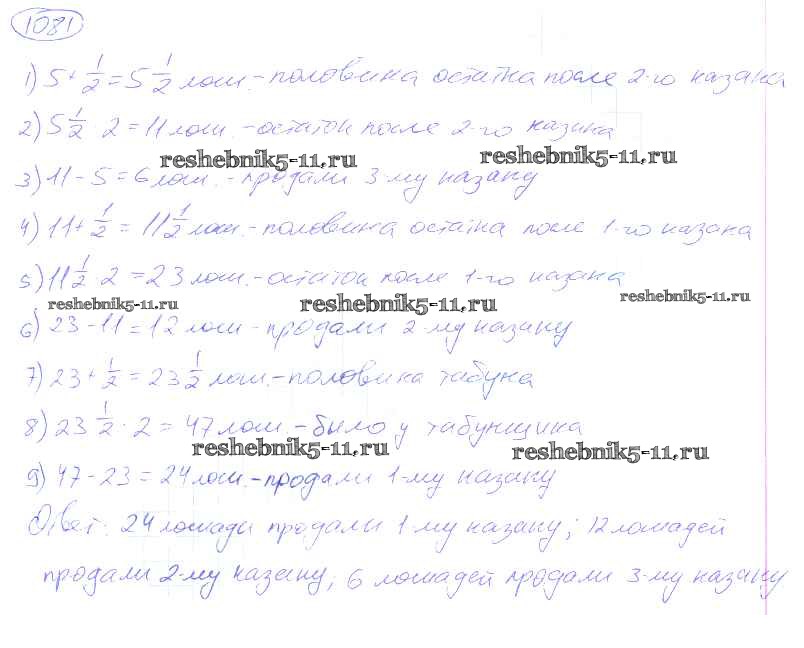 1081
1) 5 + 1/2 = 5 1/2 лош. - половина остатка после 2-го казака
2) 5 1/2 · 2 = 11 лош. - остаток после 2-го казака
reshebnik5-11.ru reshebnik5-11.ru
3) 11 - 5 = 6 лош. - продали 3-му казаку
4) 11 + 1/2 = 11 1/2 лош. - половина остатка после 1-го казака
5) 11 1/2 · 2 = 23 лош. - остаток после 1-го казака
reshebnik5-11.ru reshebnik5-11.ru reshebnik5-11.ru
6) 23 - 11 = 12 лош - продали 2-му казаку
7) 23 + 1/2 = 23 1/2 лош. - половина табуна
8) 23 1/2 · 2 = 47 лош. - было у табунщика
reshebnik5-11.ru reshebnik5-11.ru
9) 47 - 23 = 24 лош. - продали 1-му казаку
Ответ: 24 лошади продали 1-му казаку; 12 лошадей
продали 2-му казаку; 6 лошадей продали 3-му казаку